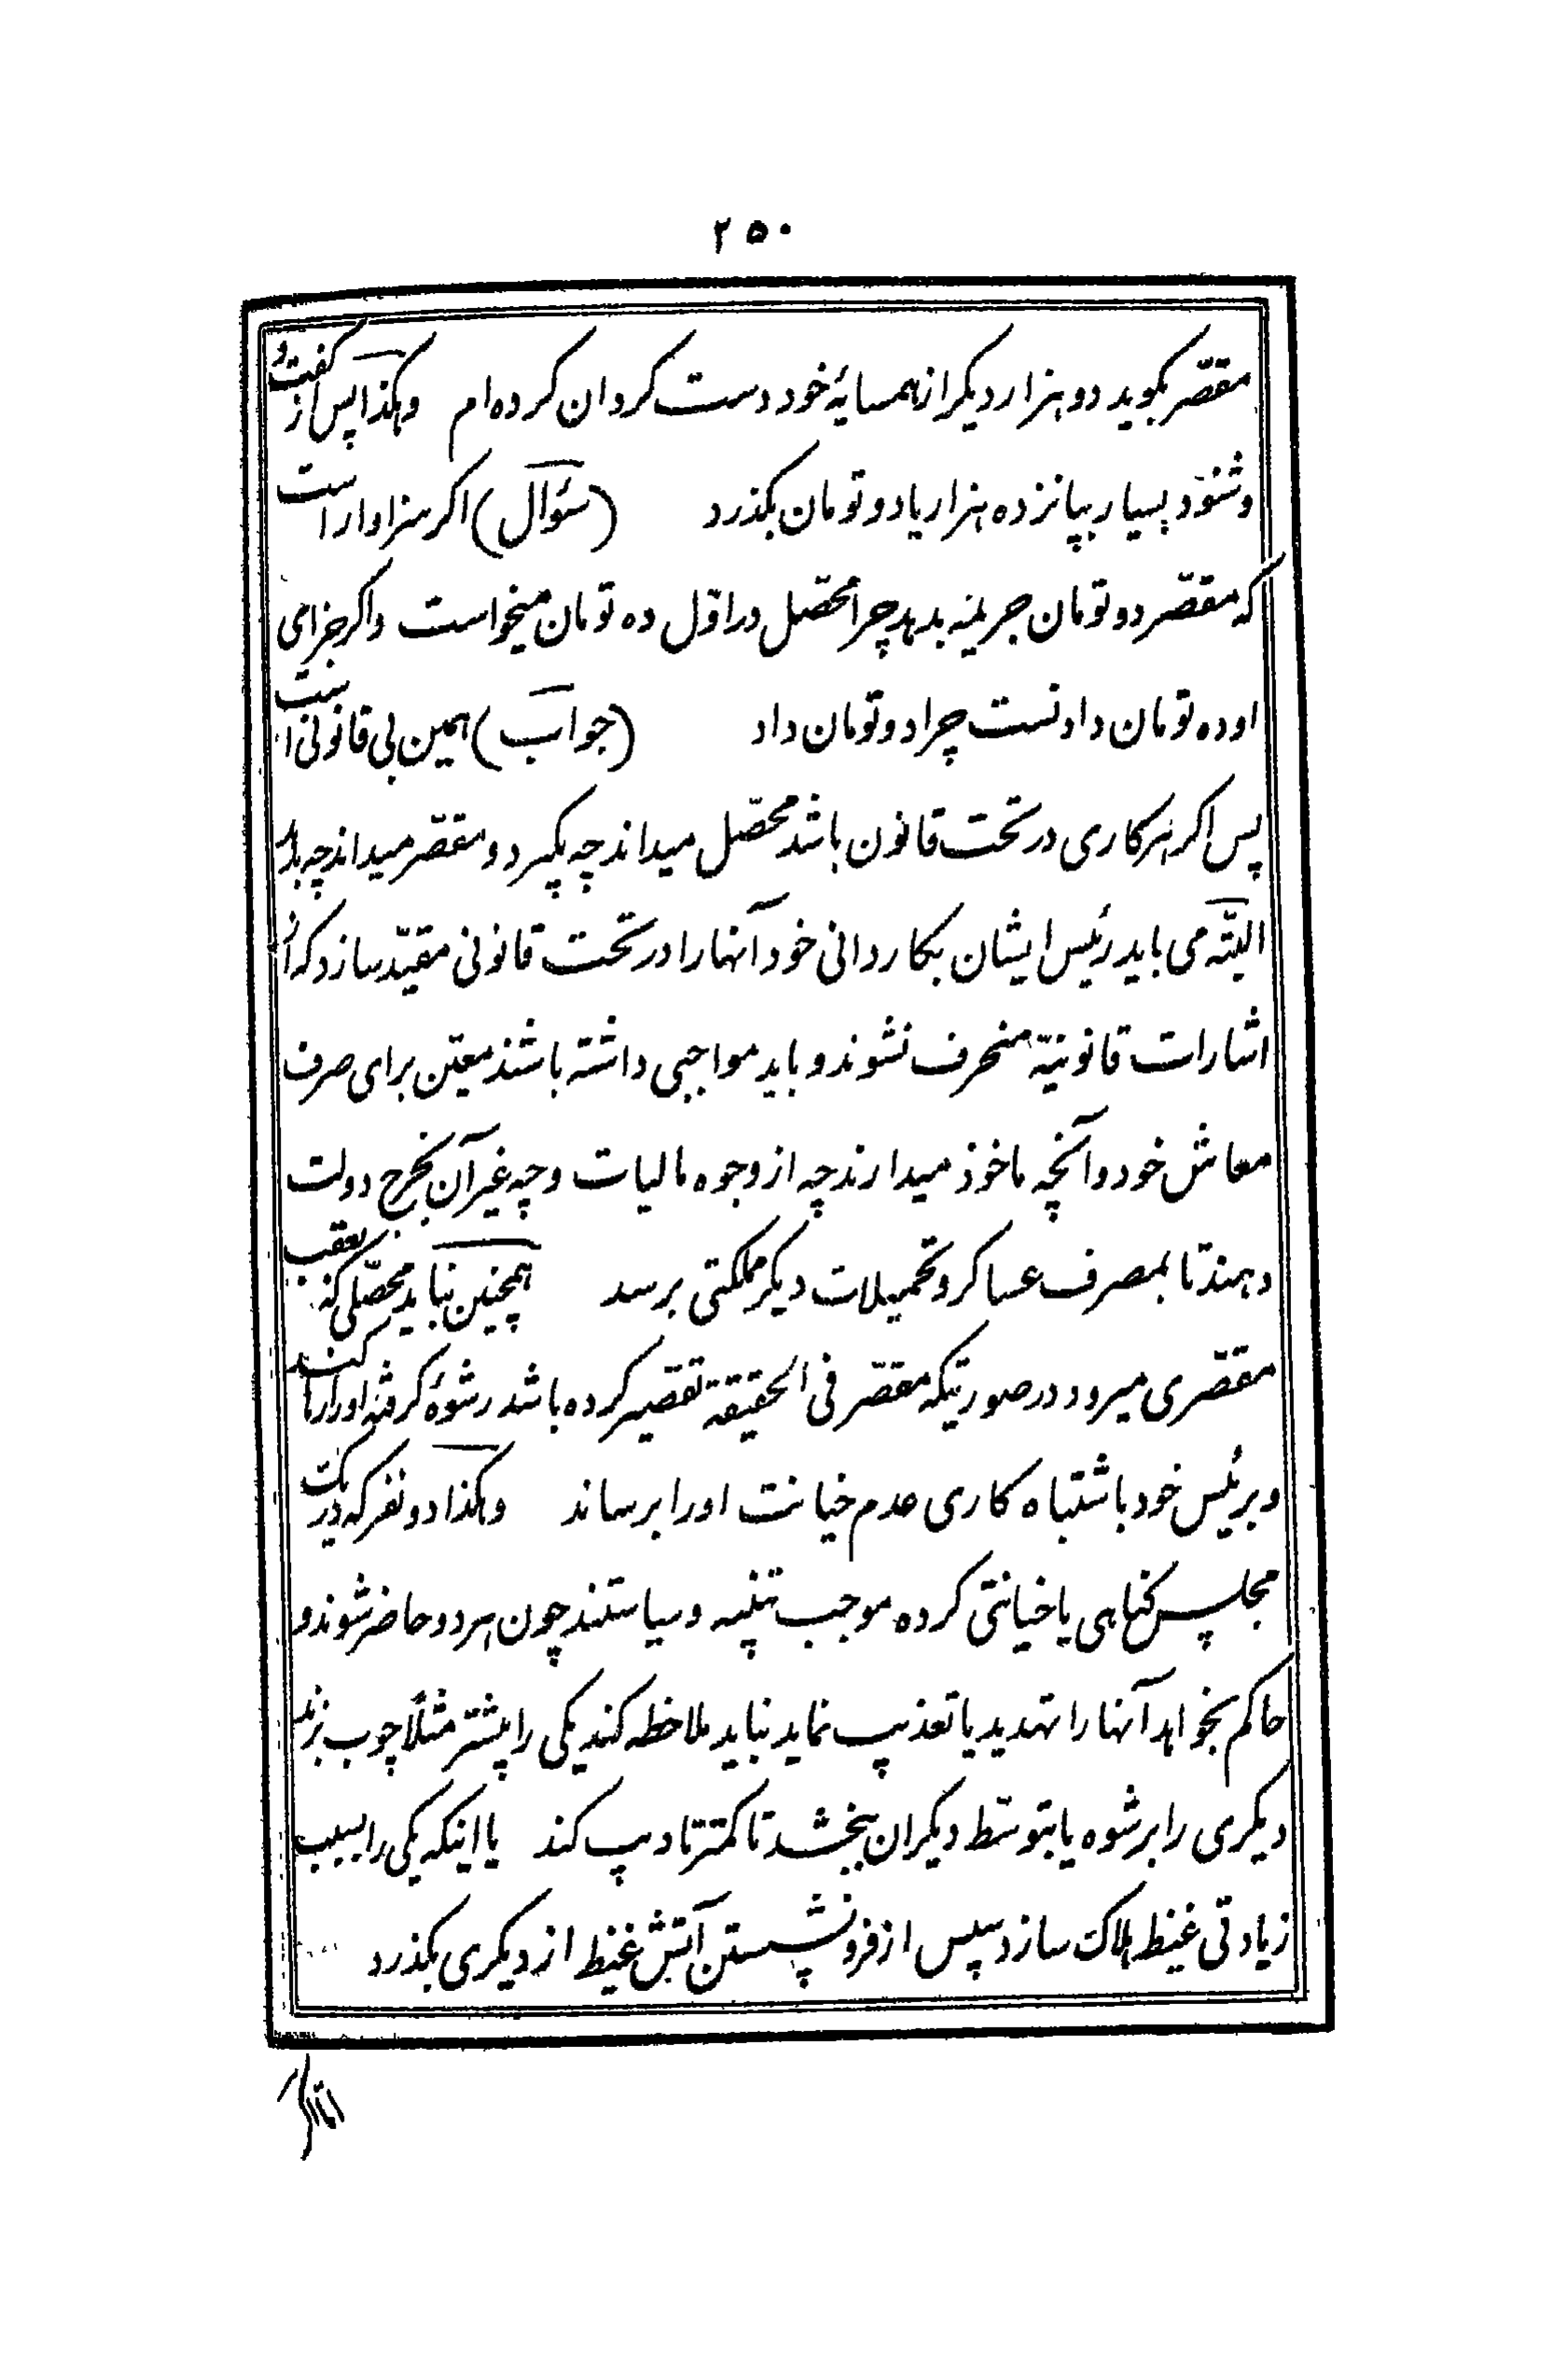 ۲۵۰
مقصّر بکوید دو هزار دیکر از همسایهٔ خود دست کردان کرده‌ام وهکذا پس از کفت و
وشنود بسیار بپانزده هزار یا دو تومان بکذرد (سؤال) اکر سزاوار است
که مقصّر دو تومان جریمه بدهد چرا محصّل در اوّل ده تومان میخواست واکر جزای
او ده تومان دادنست چرا دو تومان داد (جواب) همین بی قانونی است
پس اکر هر کاری در تحت قانون باشد محصّل میداند چه بکیرد و مقصّر میداند چه بدهد
البتّه می باید رئیس ایشان بکاردانی خود آنها را در تحت قانونی مقیّد سازد که از
اشارات قانونیّه منحرف نشوند و باید مواجبی داشته باشند معیّن برای صرف
معاش خود وآنچه ماخوذ میدارند چه از وجوه مالیات وچه غیر آن بخرج دولت
دهند تا بمصرف عساکر وتحمیلات دیکر مملکتی برسد همچنین نباید محصّلی که بعقب
مقصّری میرود در صورتیکه مقصّر فی الحقیقة تقصیر کرده باشد رشوهٔ کرفته او را رها کند
و برئیس خود باشتباه کاری عدم خیانت او را برساند وهکذا دو نفر که در یک
مجلس کناهی یا خیانتی کرده موجب تنبیه وسیاستند چون هر دو حاضر شوند و
حاکم بخواهد آنها را تهدید یا تعذیب نماید نباید ملاحظه کند یکی را بیشتر مثلاً چوب بزند
دیکری را برشوه یا بتوسّط دیکران ببخشد تا کمتر تادیب کند یا اینکه یکی را بسبب
زیادتی غیظ هلاک سازد سپس از فرو نشستن آتش غیظ از دیکری بکذرد